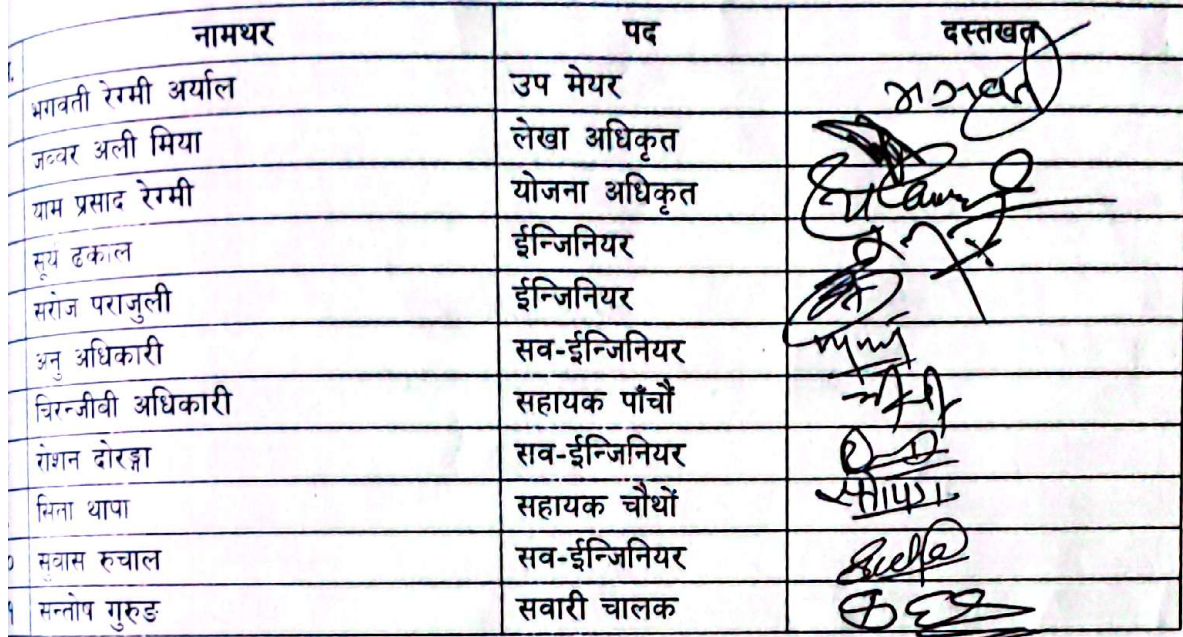 नामथर पद दस्तखत
भगवती रेग्मी अर्याल उप मेयर भगवती
जव्वर अली मिया लेखा अधिकृत
याम प्रसाद रेग्मी योजना अधिकृत
सूर्य ढकाल ईन्जिनियर
सरोज पराजुली ईन्जिनियर
अनु अधिकारी सव-ईन्जिनियर
चिरन्जीवी अधिकारी सहायक पाँचौं
रोशन दोरङ्गा सव-ईन्जिनियर
सिता थापा सहायक चौथों
सुवास रुचाल सव-ईन्जिनियर
सन्तोष गुरुङ सवारी चालक